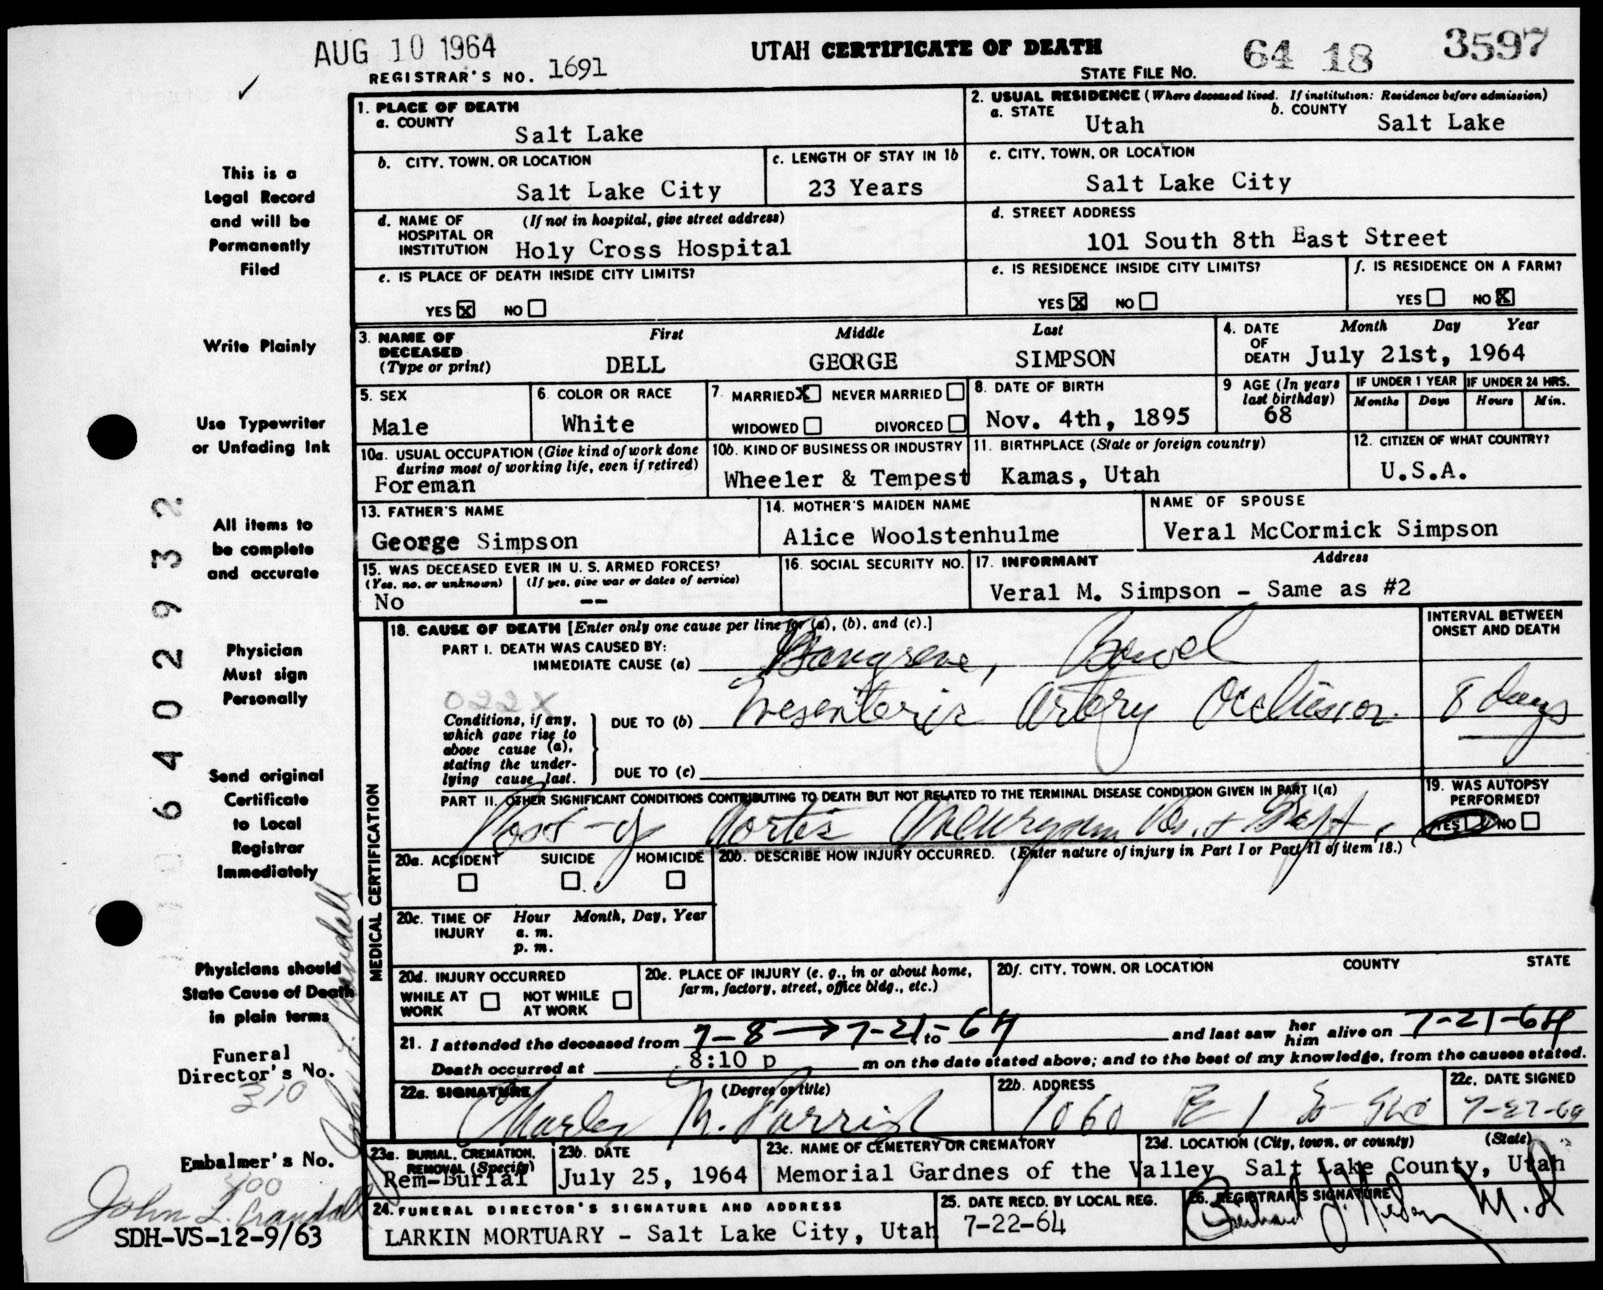 AUG 10 1964
UTAH CERTIFICATE OF DEATH
REGISTRAR'S NO. 1691
STATE FILE NO. 64 18 3597
✓
This is a
Legal Record
and will be
Permanently
Filed
Write Plainly
Use Typewriter
or Unfading Ink
All items to
be complete
and accurate
Physician
Must sign
Personally
Send original
Certificate
to Local
Registrar
Immediately
Physicians should
State Cause of Death
in plain terms
Funeral
Director's No.
310
Embalmer's No.
400
John L. Crandall
SDH-VS-12-9/63
6402932
John L. Crandall
1. PLACE OF DEATH
a. COUNTY
Salt Lake
2. USUAL RESIDENCE (Where deceased lived. If institution: Residence before admission)
a. STATE
Utah
b. COUNTY
Salt Lake
b. CITY, TOWN, OR LOCATION
Salt Lake City
c. LENGTH OF STAY IN 1b
23 Years
c. CITY, TOWN, OR LOCATION
Salt Lake City
d. NAME OF HOSPITAL OR INSTITUTION
(If not in hospital, give street address)
Holy Cross Hospital
d. STREET ADDRESS
101 South 8th East Street
e. IS PLACE OF DEATH INSIDE CITY LIMITS?
YES X NO
e. IS RESIDENCE INSIDE CITY LIMITS?
YES X NO
f. IS RESIDENCE ON A FARM?
YES NO X
3. NAME OF DECEASED (Type or print)
First Middle Last
DELL GEORGE SIMPSON
4. DATE OF DEATH
Month Day Year
July 21st, 1964
5. SEX
Male
6. COLOR OR RACE
White
7. MARRIED X NEVER MARRIED
WIDOWED DIVORCED
8. DATE OF BIRTH
Nov. 4th, 1895
9 AGE (In years last birthday)
68
IF UNDER 1 YEAR
Months Days
IF UNDER 24 HRS.
Hours Min.
10a. USUAL OCCUPATION (Give kind of work done during most of working life, even if retired)
Foreman
10b. KIND OF BUSINESS OR INDUSTRY
Wheeler & Tempest
11. BIRTHPLACE (State or foreign country)
Kamas, Utah
12. CITIZEN OF WHAT COUNTRY?
U.S.A.
13. FATHER'S NAME
George Simpson
14. MOTHER'S MAIDEN NAME
Alice Woolstenhulme
NAME OF SPOUSE
Veral McCormick Simpson
15. WAS DECEASED EVER IN U. S. ARMED FORCES?
(Yes, no, or unknown) (If yes, give war or dates of service)
No --
16. SOCIAL SECURITY NO.
17. INFORMANT Address
Veral M. Simpson - Same as #2
MEDICAL CERTIFICATION
18. CAUSE OF DEATH [Enter only one cause per line for (a), (b), and (c).]
INTERVAL BETWEEN ONSET AND DEATH
PART I. DEATH WAS CAUSED BY:
IMMEDIATE CAUSE (a) Gangrene, Bowel
022X
Conditions, if any, which gave rise to above cause (a), stating the underlying cause last.
DUE TO (b) Mesenteric Artery Occlusion 8 days
DUE TO (c)
PART II. OTHER SIGNIFICANT CONDITIONS CONTRIBUTING TO DEATH BUT NOT RELATED TO THE TERMINAL DISEASE CONDITION GIVEN IN PART I(a)
Post-op Aortic Aneurysm Res. + Graft.
19. WAS AUTOPSY PERFORMED?
YES NO
20a. ACCIDENT SUICIDE HOMICIDE
20b. DESCRIBE HOW INJURY OCCURRED. (Enter nature of injury in Part I or Part II of item 18.)
20c. TIME OF INJURY
Hour Month, Day, Year
a. m.
p. m.
20d. INJURY OCCURRED
WHILE AT WORK NOT WHILE AT WORK
20e. PLACE OF INJURY (e. g., in or about home, farm, factory, street, office bldg., etc.)
20f. CITY, TOWN, OR LOCATION COUNTY STATE
21. I attended the deceased from 7-8 → 7-21-64 to and last saw her him alive on 7-21-64
Death occurred at 8:10 p m on the date stated above; and to the best of my knowledge, from the causes stated.
22a. SIGNATURE (Degree or title)
Charles M. Parrish
22b. ADDRESS
1060 E 1 So SLC
22c. DATE SIGNED
7-27-64
23a. BURIAL, CREMATION, REMOVAL (Specify)
Rem-Burial
23b. DATE
July 25, 1964
23c. NAME OF CEMETERY OR CREMATORY
Memorial Gardnes of the Valley
23d. LOCATION (City, town, or county) (State)
Salt Lake County, Utah
24. FUNERAL DIRECTOR'S SIGNATURE AND ADDRESS
LARKIN MORTUARY - Salt Lake City, Utah
25. DATE RECD. BY LOCAL REG.
7-22-64
26. REGISTRAR'S SIGNATURE
M.D